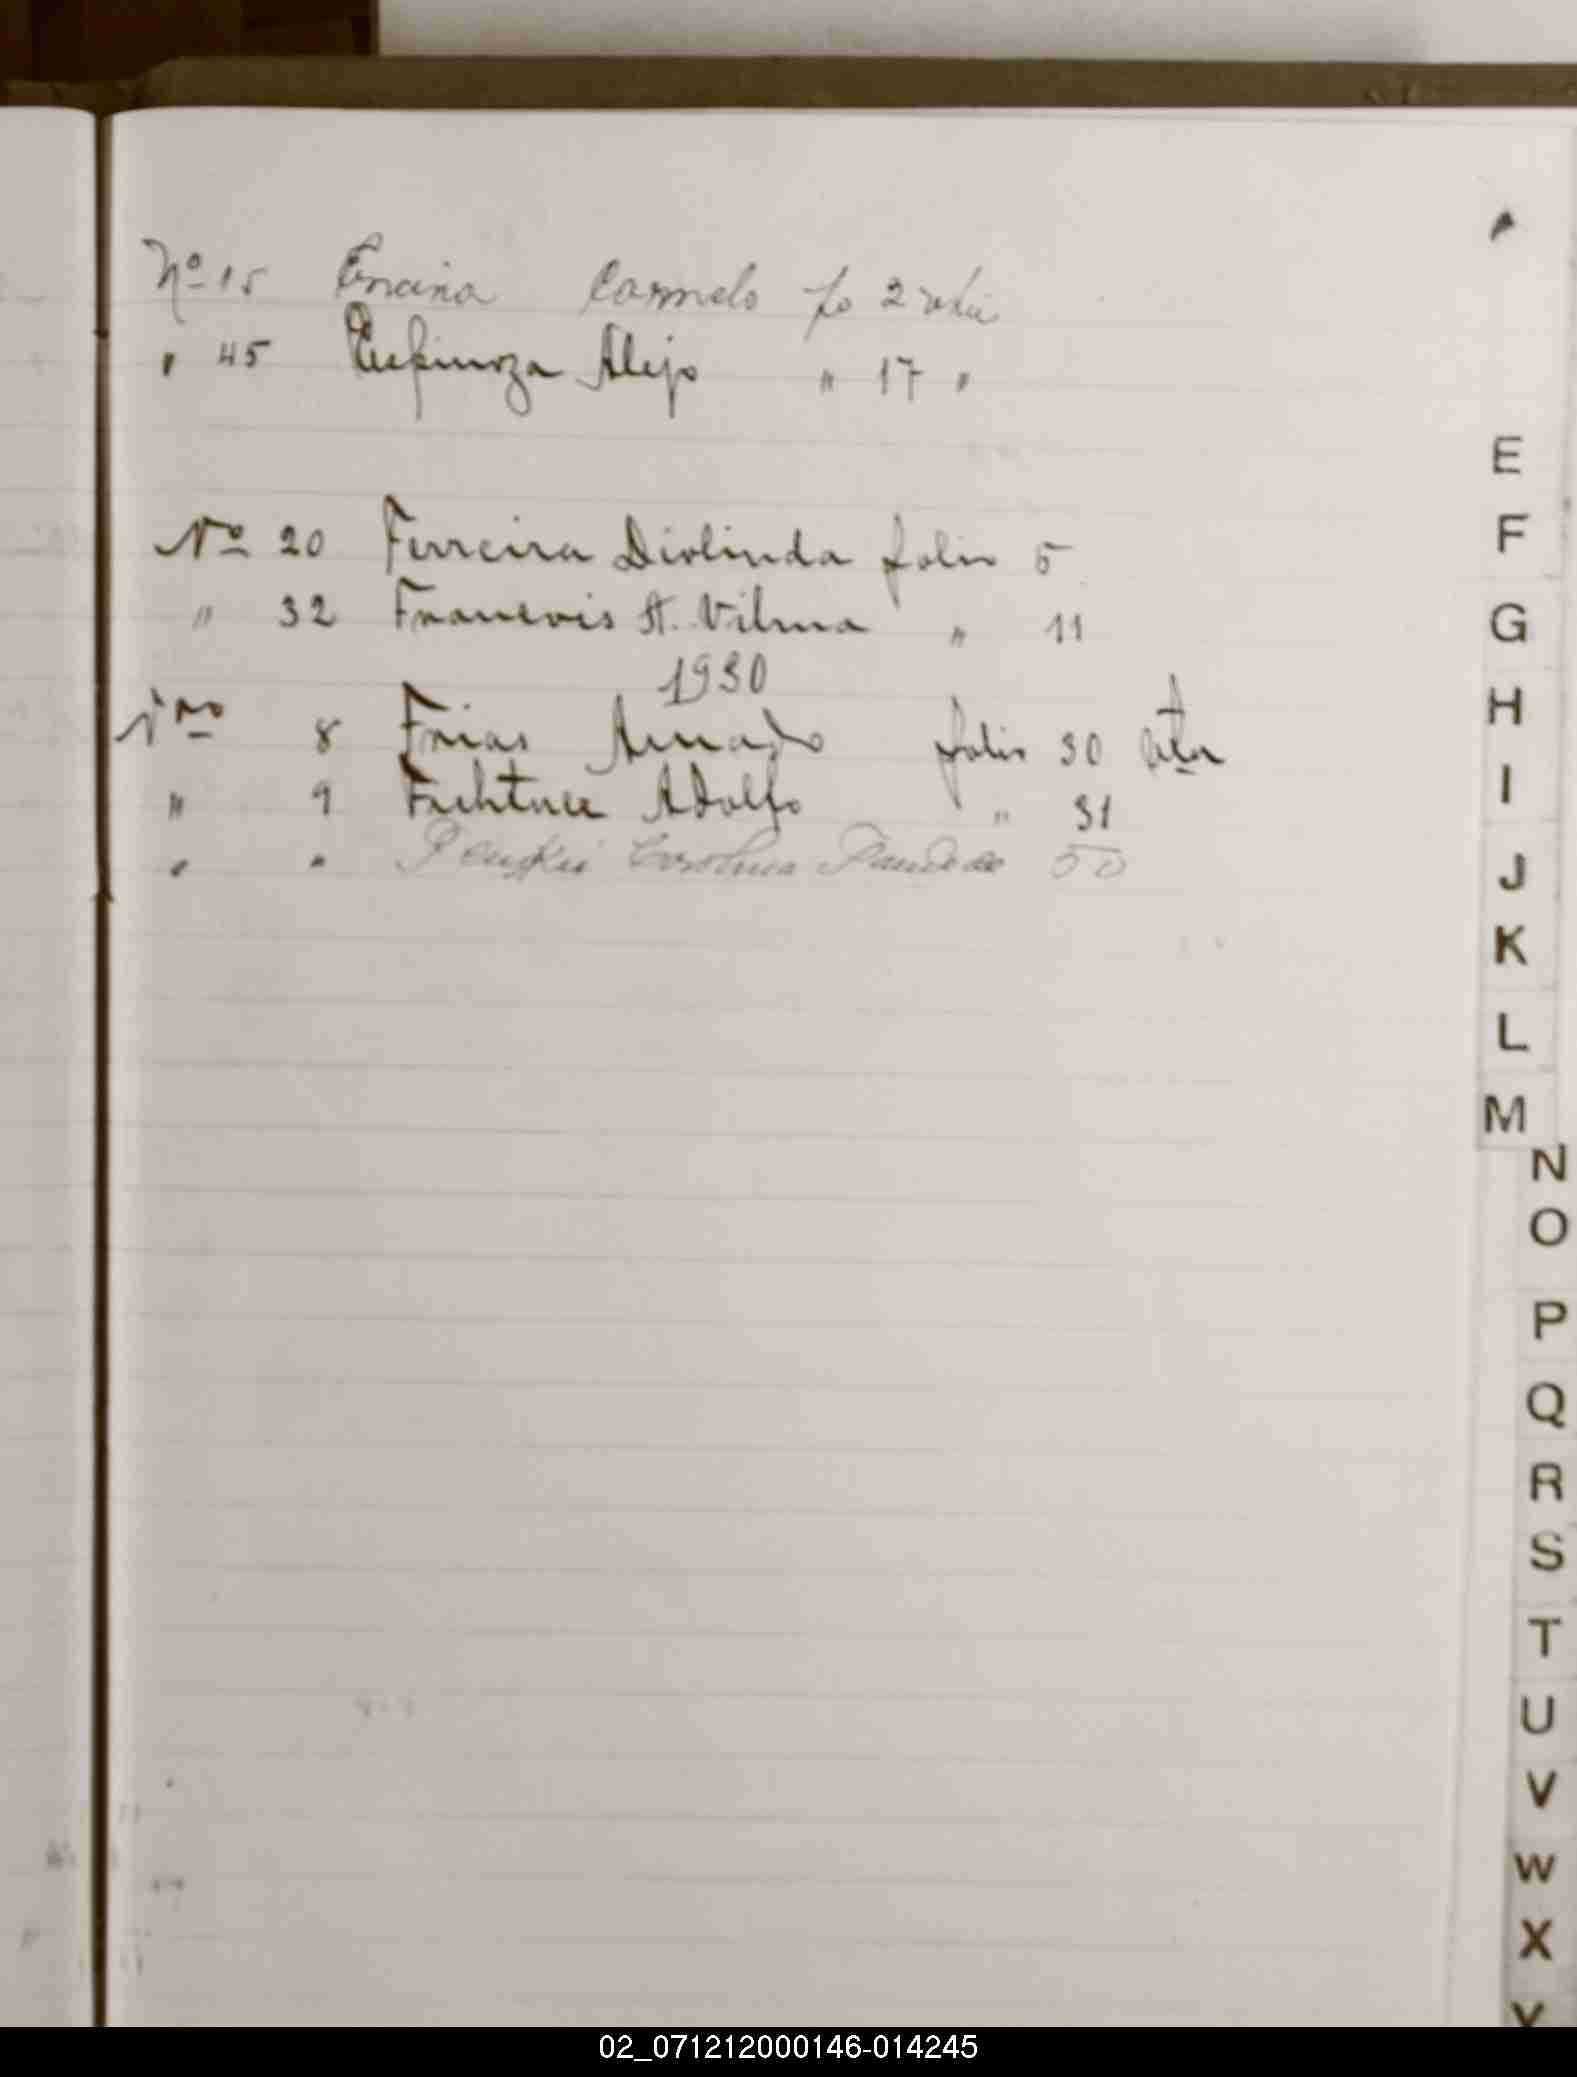 Nº 15 Encina Carmelo fo 2 vta
" 45 Espinoza Alejo " 17 "
Nº 20 Ferreira Diolinda folio 5
" 32 Francois A. Vilma " 11
1930
Nro 8 Frias Amado folio 30 vta
" 9 Adolfo " 31
" " Carolina 50
E
F
G
H
I
J
K
L
M
N
O
P
Q
R
S
T
U
V
W
X
Y
02_071212000146-014245